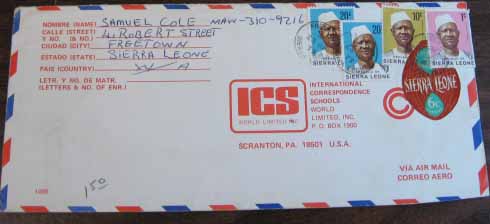 NOMBRE (NAME) SAMUEL COLE MAW-310-9216
CALLE (STREET) 4, ROBERT STREET
Y NO. (& NO.)
CIUDAD (CITY) FREETOWN
ESTADO (STATE) SIERRA LEONE
PAIS (COUNTRY) W A
LETR. Y NO. DE MATR.
(LETTERS & NO. OF ENR.)
20c
20c
10c
1c
SIERRA LEONE
SIERRA LEONE
SIERRA LEONE
SIERRA LEONE
6c
ICS
WORLD LIMITED INC
INTERNATIONAL
CORRESPONDENCE
SCHOOLS
WORLD
LIMITED, INC.
P.O. BOX 1900
SCRANTON, PA. 18501 U.S.A.
VIA AIR MAIL
CORREO AEREO
1.50